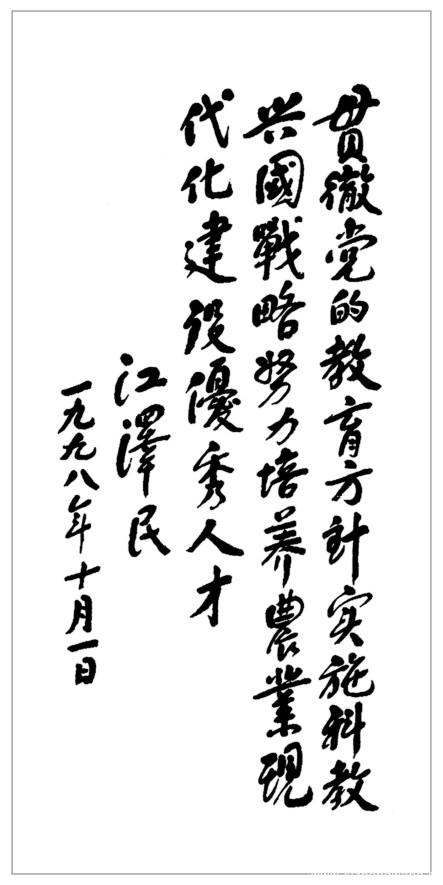 贯徹党的教育方針实施科教
兴國戰略努力培养農業現
代化建设優秀人才
江澤民
一九九八年十月一日